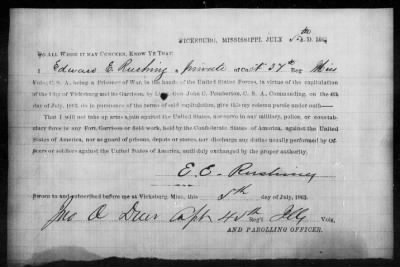 VICKSBURG, MISSISSIPPI, JULY 8th A. D. 1863.
TO ALL WHOM IT MAY CONCERN, KNOW YE THAT:
I Edward E. Rushing a Private of Co. 37th Reg Miss
Vols., C. S. A., being a Prisoner of War, in the hands of the United States Forces, in virtue of the capitulation
of the City of Vicksburg and its Garrison, by Lieutenant Gen. John C. Pemberton, C. S. A., Commanding, on the 4th
day of July, 1863, do in pursuance of the terms of said capitulation, give this my solemn parole under oath—
That I will not take up arms again against the United States, nor serve in any military, police, or constab-
ulary force in any Fort, Garrison or field work, held by the Confederate States of America, against the United
States of America, nor as guard of prisons, depots or stores, nor discharge any duties usually performed by Of-
ficers or soldiers against the United States of America, until duly exchanged by the proper authority.
E. E. Rushing
Sworn to and subscribed before me at Vicksburg, Miss., this 8th day of July, 1863.
Jno O Duer Capt 45th Reg't Ills Vols.
AND PAROLLING OFFICER.